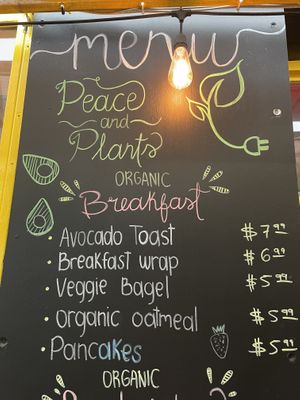 menu
Peace
and
Plants
ORGANIC
Breakfast
• Avocado Toast $7.99
• Breakfast wrap $6.99
• Veggie Bagel $5.99
• organic oatmeal $5.99
• Pancakes $5.99
ORGANIC